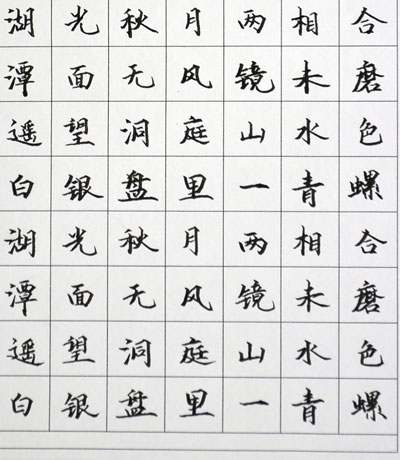 湖光秋月两相合
潭面无风镜未磨
遥望洞庭山水色
白银盘里一青螺
湖光秋月两相合
潭面无风镜未磨
遥望洞庭山水色
白银盘里一青螺